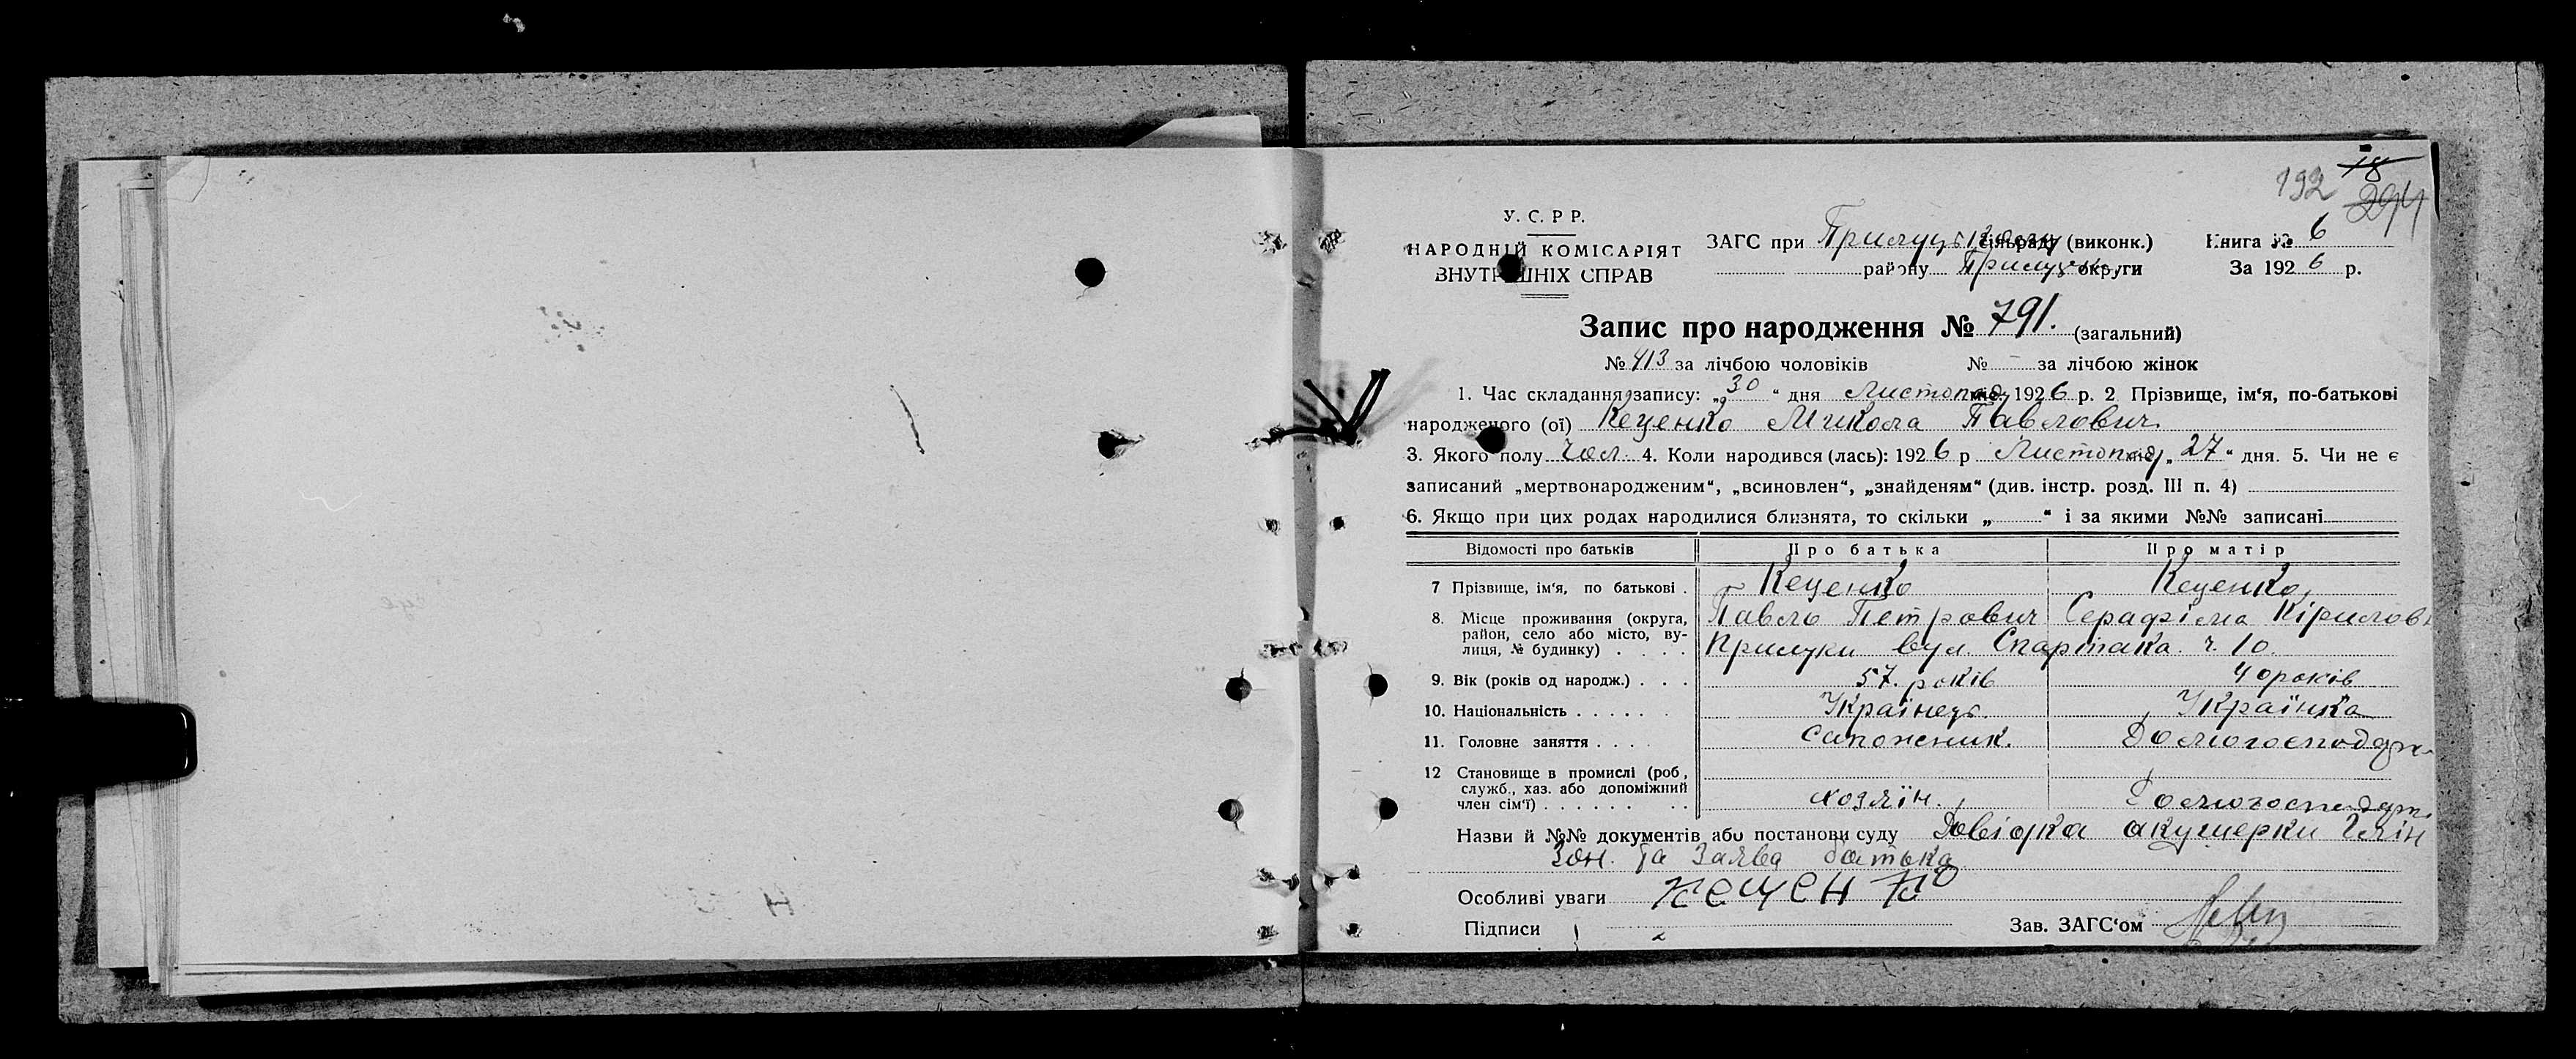 192 18
294
У. С. Р Р.
НАРОДНІЙ КОМІСАРІЯТ
ВНУТРІШНІХ СПРАВ
ЗАГС при сільраді (виконк.) Книга № 6
району Прилуцьк. округи За 1926 р.
Запис про народження № 791. (загальний)
№ 413 за лічбою чоловіків № — за лічбою жінок
1. Час складання запису: „30“ дня Листопад 1926 р. 2 Прізвище, ім‘я, по-батькові
народженого (ої) Кеценко Микола Павлович
3. Якого полу Чол. 4. Коли народився (лась): 1926 р Листопад „27“ дня. 5. Чи не є
записаний „мертвонародженим“, „всиновлен“, „знайденям“ (див. інстр. розд. III п. 4)
6. Якщо при цих родах народилися близнята, то скільки „ “ і за якими №№ записані
Відомості про батьків Про батька Про матір
7 Прізвище, ім‘я, по батькові . Кеценко Кеценко,
8. Місце проживання (округа, Павло Петрович Серафіма Кірилов
район, село або місто, ву-
лиця, № будинку) . . . . Прилуки вул. Спартака. ч. 10.
9. Вік (років од народж.) . . . 57. років 40 років
10. Національність . . . . . Українець. Українка
11. Головне заняття . . . . Сапожник. Домогосподар
12 Становище в промислі (роб,
служб., хаз. або допоміжний
член сім‘ї) . . . . . . . . хозяїн. Домогосподар.
Назви й №№ документів або постанови суду Довідка акушерки
та Заява батька
Особливі уваги Кеценко
Підписи Зав. ЗАГС‘ом